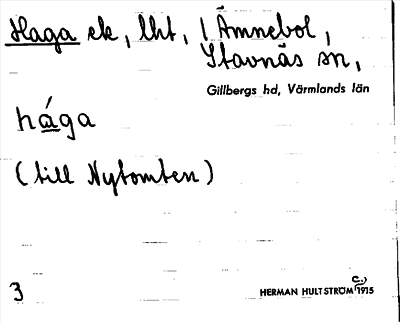 Haga ek, lht, 1 Ämnebol,
Stavnäs sn,
Gillbergs hd, Värmlands län
håga
(till Nytomten)
3
HERMAN HULTSTRÖM c., 1915